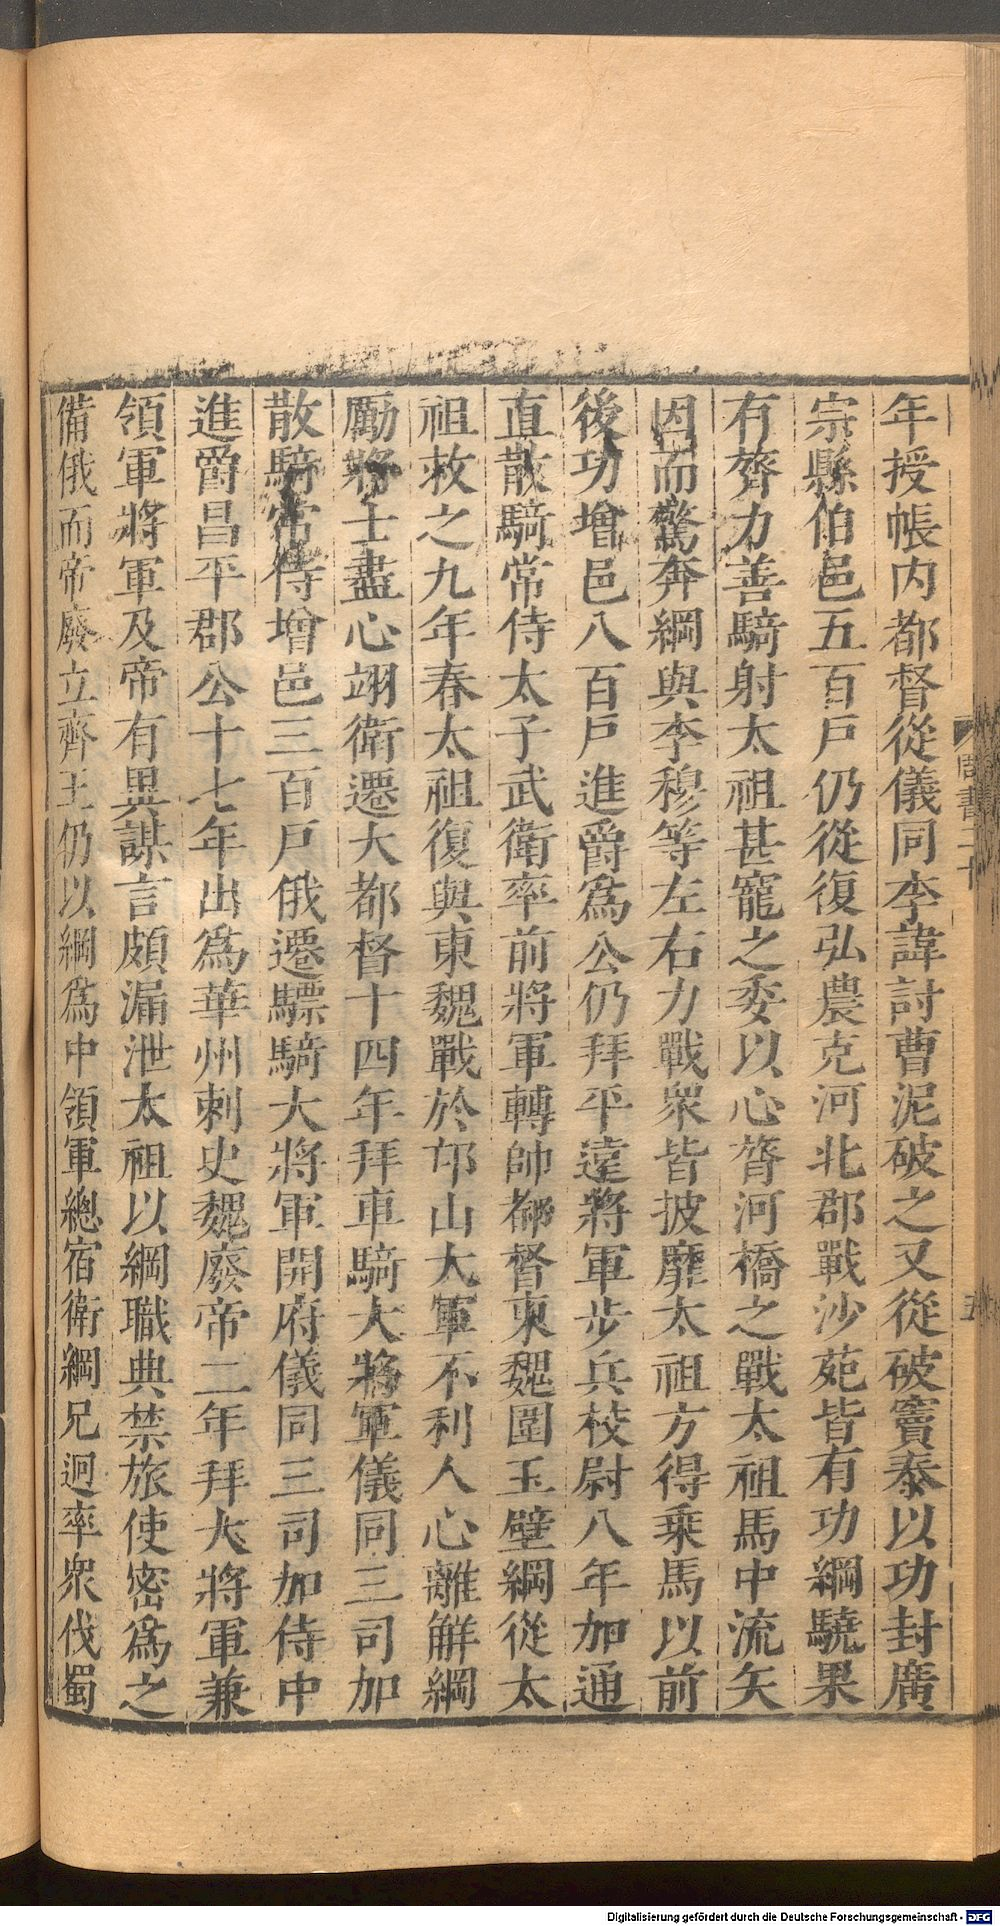 年授帳内都督從儀同李諱討曹泥破之又從破竇泰以功封廣
宗縣伯邑五百戸仍從復弘農克河北郡戰沙苑皆有功綱驍果
有膂力善騎射太祖甚寵之委以心膂河橋之戰太祖馬中流矢
因而驚奔綱與李穆等左右力戰衆皆披靡太祖方得乗馬以前
後功增邑八百戸進爵爲公仍拜平遠將軍步兵校尉八年加通
直散騎常侍太子武衛率前將軍轉帥都督東魏圍玉壁綱從太
祖救之九年春太祖復與東魏戰於邙山大軍不利人心離解綱
勵將士盡心翊衛遷大都督十四年拜車騎大將軍儀同三司加
散騎常侍增邑三百戸俄遷驃騎大將軍開府儀同三司加侍中
進爵昌平郡公十七年出爲華州刺史魏廢帝二年拜大將軍兼
領軍將軍及帝有異謀言頗漏泄太祖以綱職典禁旅使密爲之
備俄而帝廢立齊王仍以綱爲中領軍總宿衛綱兄迥率衆伐蜀
周書二十
五
Digitalisierung gefördert durch die Deutsche Forschungsgemeinschaft - DFG